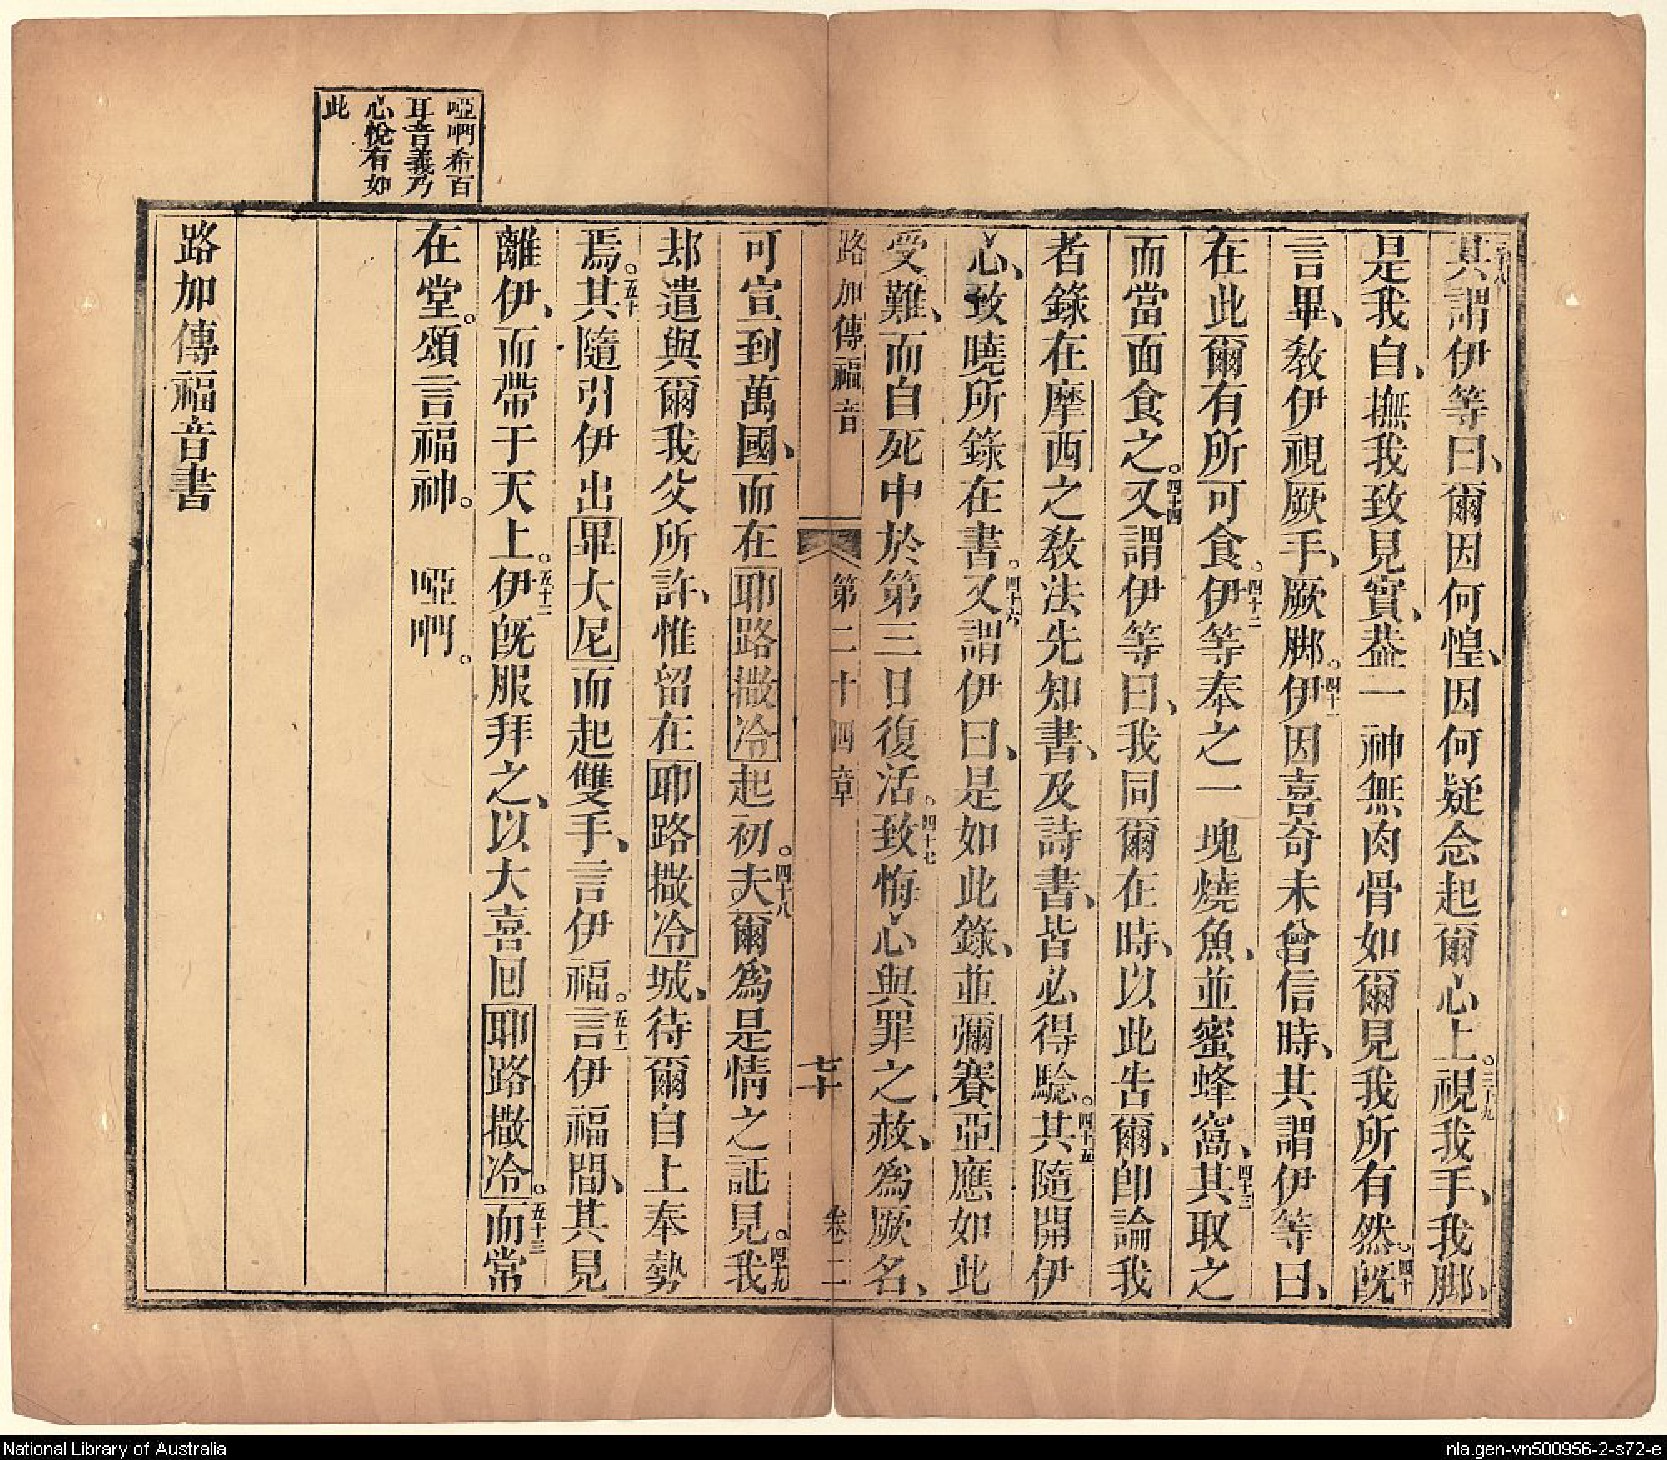 其謂伊等曰、爾因何惶、因何疑念起爾心上。三十九視我手、我脚、
是我自、撫我致見實、葢一神無肉骨如爾見我所有然。四十旣
言畢、敎伊視厥手、厥脚。四十一伊因喜奇未曾信時、其謂伊等曰、
在此爾有所可食。四十二伊等奉之一塊燒魚、並蜜蜂窩、四十三其取之
而當面食之。四十四又謂伊等曰、我同爾在時、以此告爾、卽論我
者錄在摩西之敎法先知書、及詩書、皆必得騐。四十五其隨開伊
心、致曉所錄在書。四十六又謂伊曰、是如此錄、並彌賽亞應如此
受難、而自死中於第三日復活。四十七致悔心與罪之赦、爲厥名、
路加傳福音 第二十四章 七十 卷二
可宣到萬國、而在耶路撒冷起初。四十八夫爾爲是情之証見。四十九我
却遣與爾我父所許、惟留在耶路撒冷城、待爾自上奉勢
焉。五十其隨引伊出畢大尼而起雙手、言伊福。五十一言伊福間、其見
離伊、而帶于天上。五十二伊旣服拜之、以大喜回耶路撒冷。五十三而常
在堂。頌言福神。 啞啊。
路加傳福音書
啞啊希百
耳音義乃
心悅有如
此
National Library of Australia
nla.gen-vn500956-2-s72-e